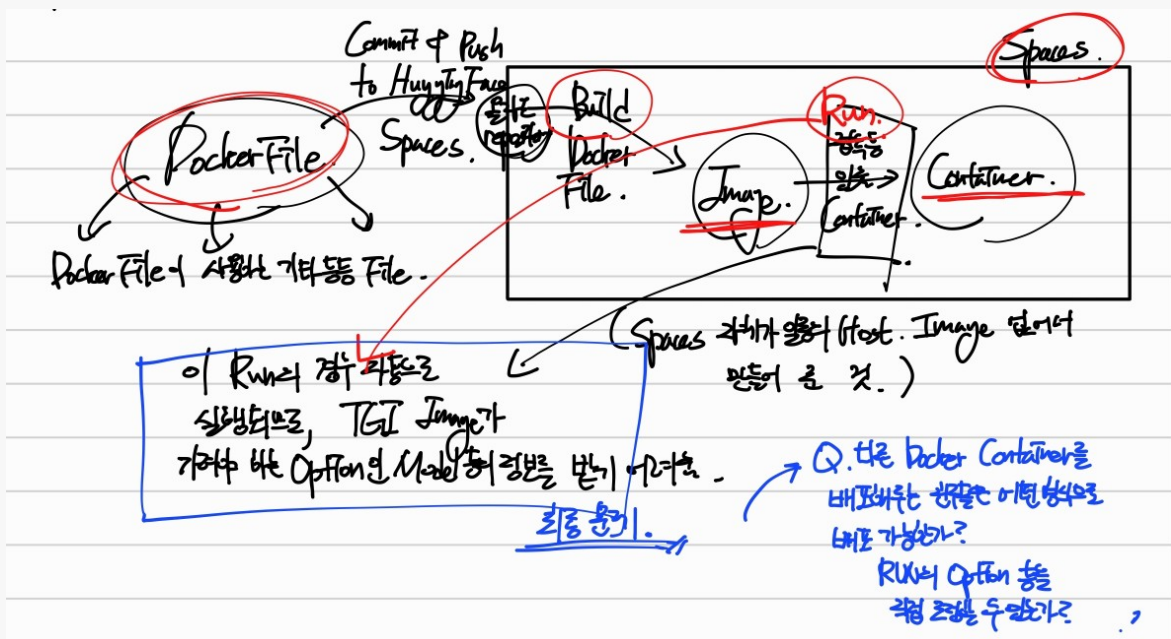 Commit & Push
to HuggingFace
Spaces.
DockerFile
DockerFile이 사용하는 기타 등등 File.
Build
Docker
File.
Image.
Run.
Container.
Container.
Spaces.
(Spaces 자체가 일종의 Host. Image 없어서
만들어 준 것.)
이 Run의 경우 자동으로
실행되므로, TGI Image가
가져야 하는 Option인 Model 등의 정보를 받기 어려움.
최종 문제.
Q. 다른 Docker Container를
배포해주는 어떤 형식으로
배포 가능한가?
RUN의 Option 등을
직접 조절할 수 있는가?